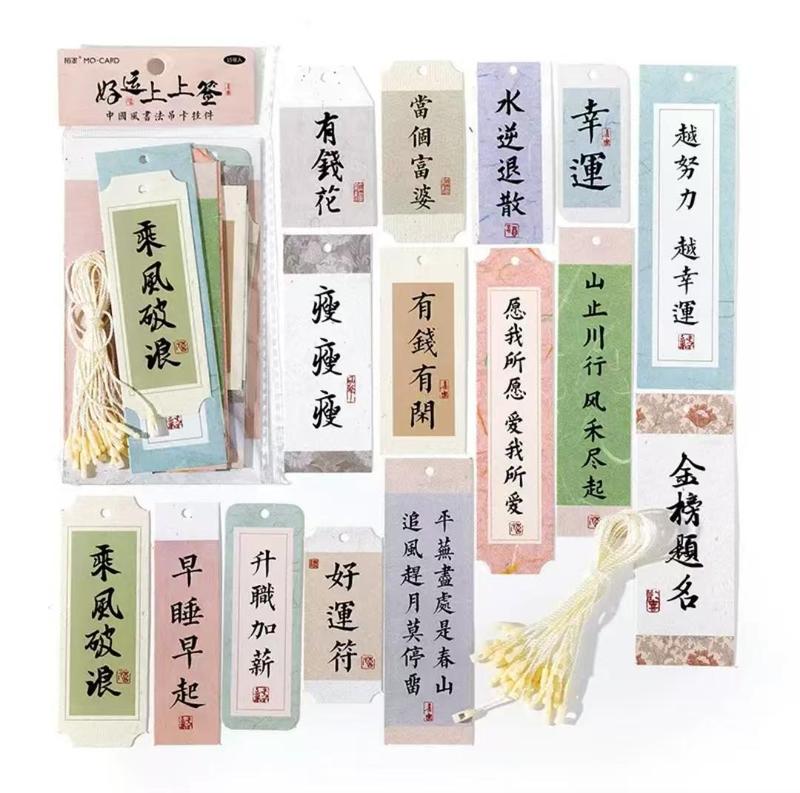 MO·CARD
好运上上签
中國風書法吊卡挂件
乘風破浪
有錢花
當個富婆
水逆退散
幸運
越努力 越幸運
瘦瘦瘦
有錢有閑
愿我所愿 爱我所爱
山止川行 风禾尽起
金榜題名
乘風破浪
早睡早起
升職加薪
好運符
追風趕月莫停留
平蕪盡處是春山